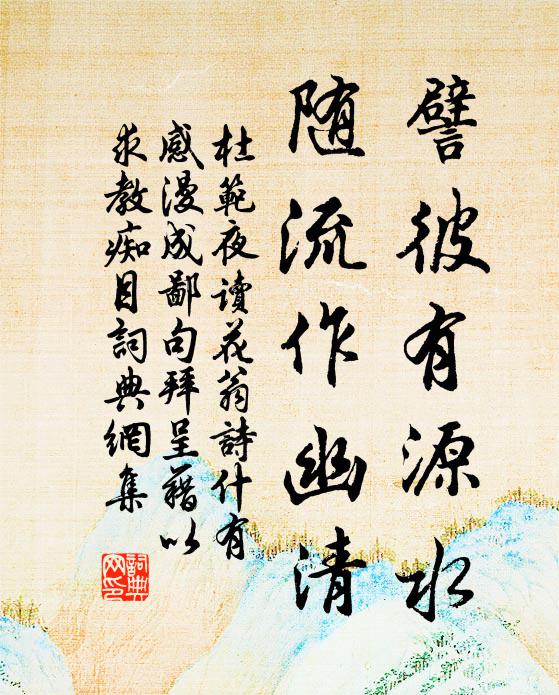 譬彼有源水
随流作幽清
杜範夜讀花翁詩什有
感漫成鄙句拜呈藉以
求教痴目詞典網集
詞典网印